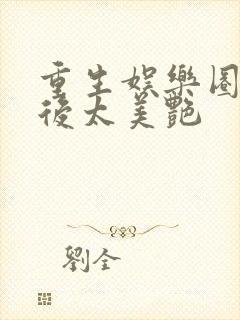 重生娛樂圈
後太美艷
劉全